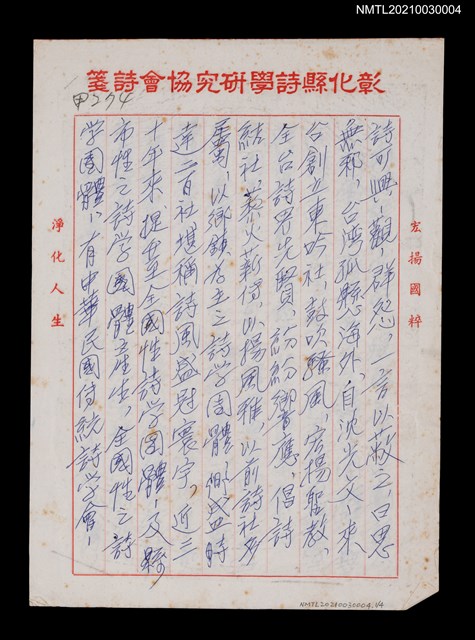 NMTL20210030004
彰化縣詩學研究協會詩箋
甲274
宏揚國粹
詩可興、觀、群怨，一言以蔽之，曰思
無邪，台湾孤懸海外，自沈光文、來
台創立東吟社，鼓吹騷風，宏揚聖教、
全台詩界先賢，紛紛響應，倡詩
結社，薪火薪傳，以揚風雅，以前詩社多
屬以鄉鎮為主之詩学団體，鼎盛時
達二百社堪稱詩風盛冠寰宇。近三
十年來，提昇至全國性詩学團體，及縣
市性之詩学團體產生，全國性之詩
学團體，有中華民國傳統詩学會，
淨化人生
NMTL20210030004.1/4